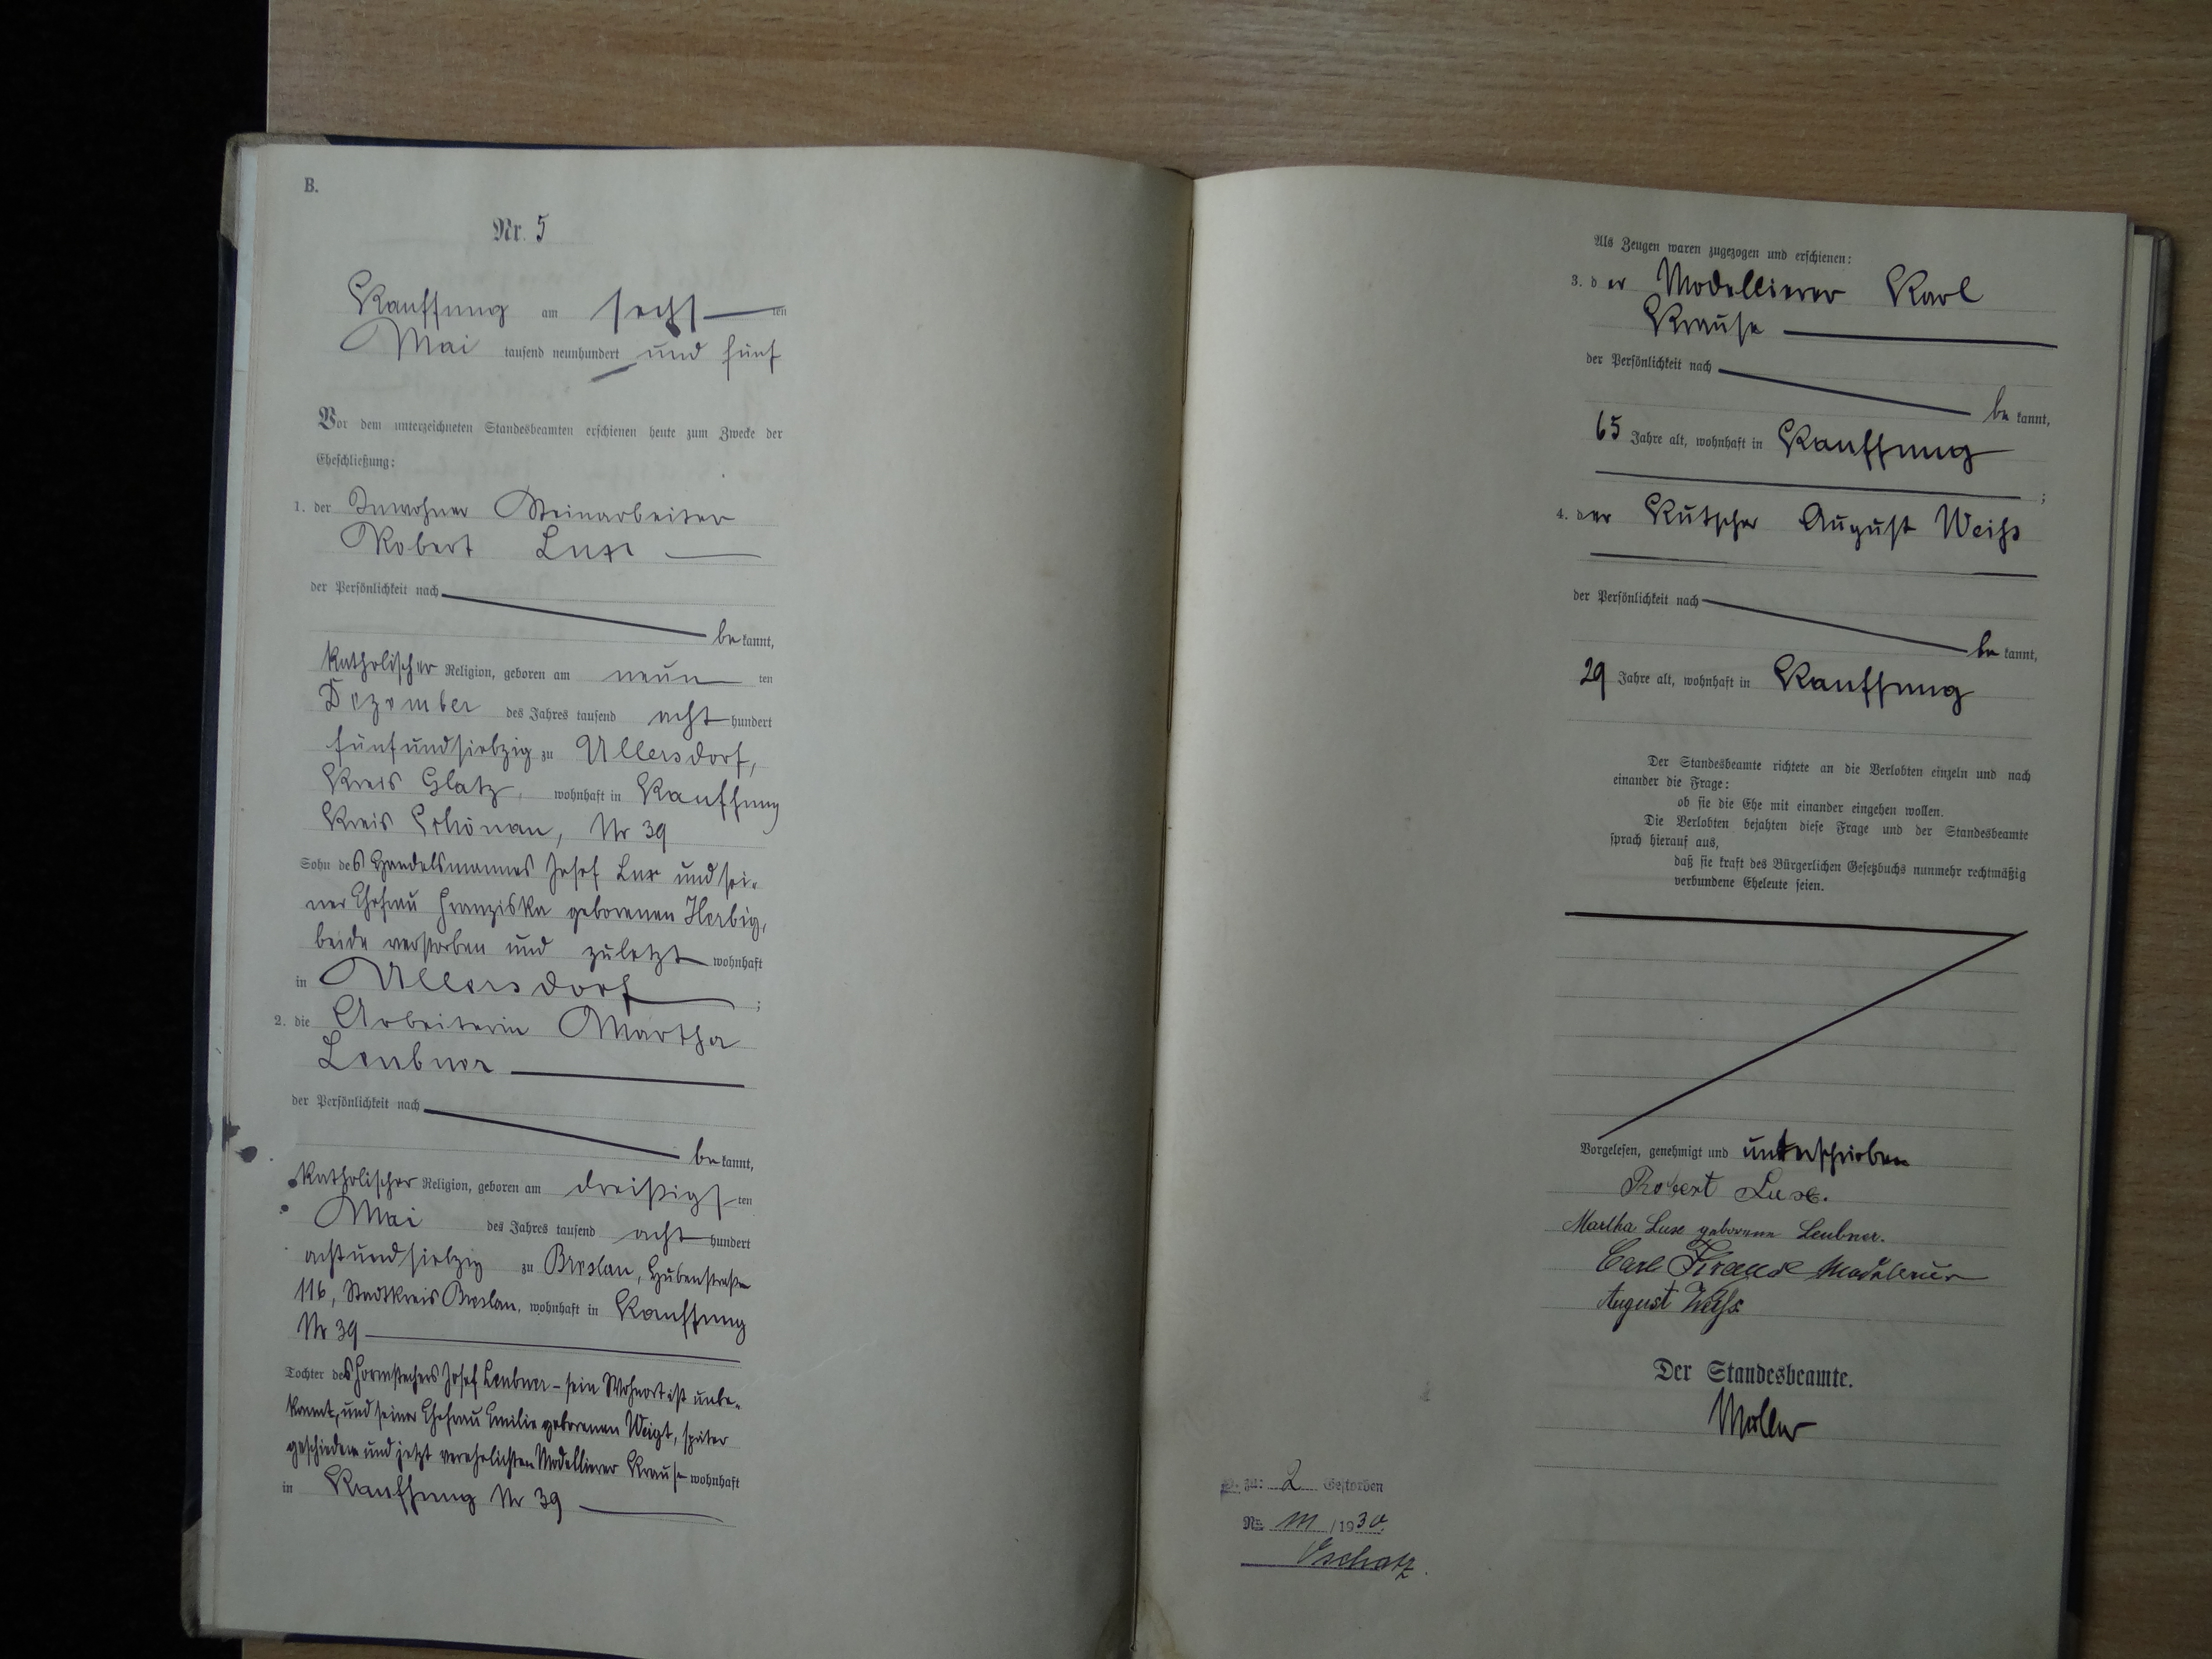 B.
Nr. 5
Kauffung am sechsten
Mai tausend neunhundert und fünf
Vor dem unterzeichneten Standesbeamten erschienen heute zum Zwecke der
Eheschließung:
1. der Inwohner Steinarbeiter
Robert Lux
der Persönlichkeit nach
be kannt,
katholischer Religion, geboren am neun ten
Dezember des Jahres tausend acht hundert
fünfundsiebzig zu Ullersdorf,
Kreis Glatz, wohnhaft in Kauffung
Kreis Schönau, Nr 39
Sohn des Handelsmannes Josef Lux und sei-
ner Ehefrau Franziska geborenen Herbig,
beide verstorben und zuletzt wohnhaft
in Ullersdorf ;
2. die Arbeiterin Martha
Leubner
der Persönlichkeit nach
be kannt,
katholischer Religion, geboren am dreißigsten
Mai des Jahres tausend acht hundert
achtundsiebzig zu Breslau, Hubenstraße
116, Stadtkreis Breslau, wohnhaft in Kauffung
Nr 39
Tochter des Formstechers Josef Leubner - sein Wohnort ist unbe-
kannt, und seiner Ehefrau Emilie geborenen Weigt, später
geschieden und jetzt verehelichten Modellierer Krause wohnhaft
in Kauffung Nr 39
Als Zeugen waren zugezogen und erschienen:
3. der Modellierer Karl
Krause
der Persönlichkeit nach
be kannt,
65 Jahre alt, wohnhaft in Kauffung
;
4. der Kutscher August Weiß
der Persönlichkeit nach
be kannt,
29 Jahre alt, wohnhaft in Kauffung
Der Standesbeamte richtete an die Verlobten einzeln und nach
einander die Frage:
ob sie die Ehe mit einander eingehen wollen.
Die Verlobten bejahten diese Frage und der Standesbeamte
sprach hierauf aus,
daß sie kraft des Bürgerlichen Gesetzbuchs nunmehr rechtmäßig
verbundene Eheleute seien.
Vorgelesen, genehmigt und unterschrieben
Robert Lux.
Martha Lux geborene Leubner.
Carl Krause Modelleur
August Weiß
Der Standesbeamte.
Müller
zu: 2 Gestorben
Nr. /1930.